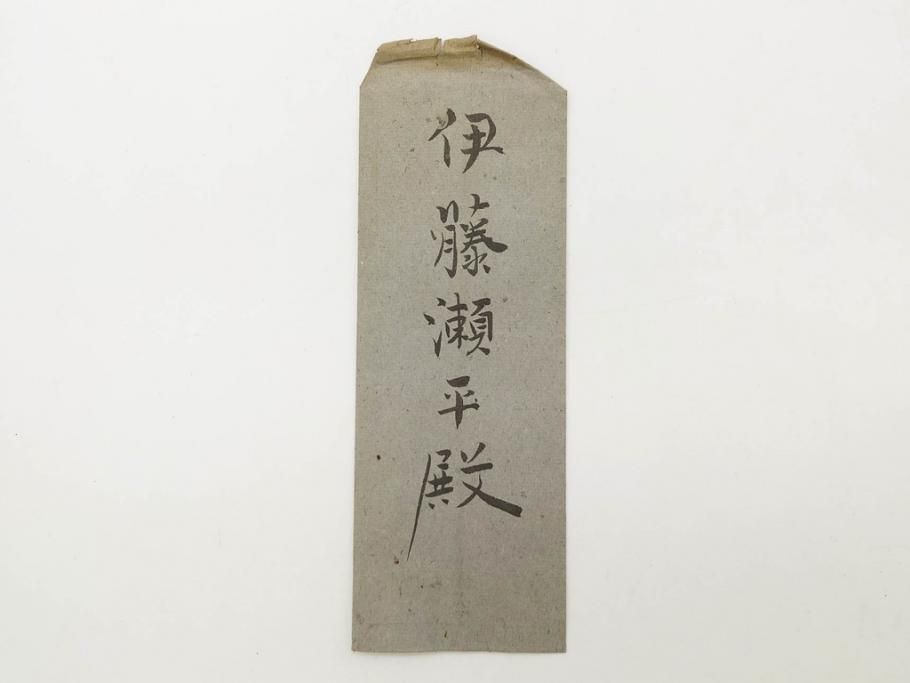 伊藤瀬平殿